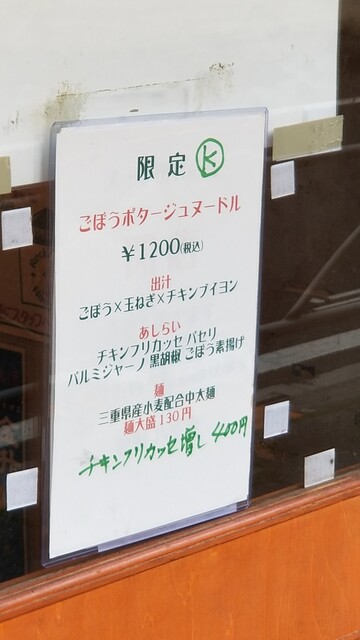 限定 Ⓚ
ごぼうポタージュヌードル
￥1200(税込)
出汁
ごぼう×玉ねぎ×チキンブイヨン
あしらい
チキンフリカッセ パセリ
パルミジャーノ 黒胡椒 ごぼう素揚げ
麺
三重県産小麦配合中太麺
麺大盛130円
チキンフリカッセ増し 400円